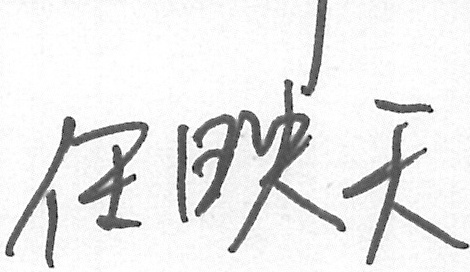 任映天